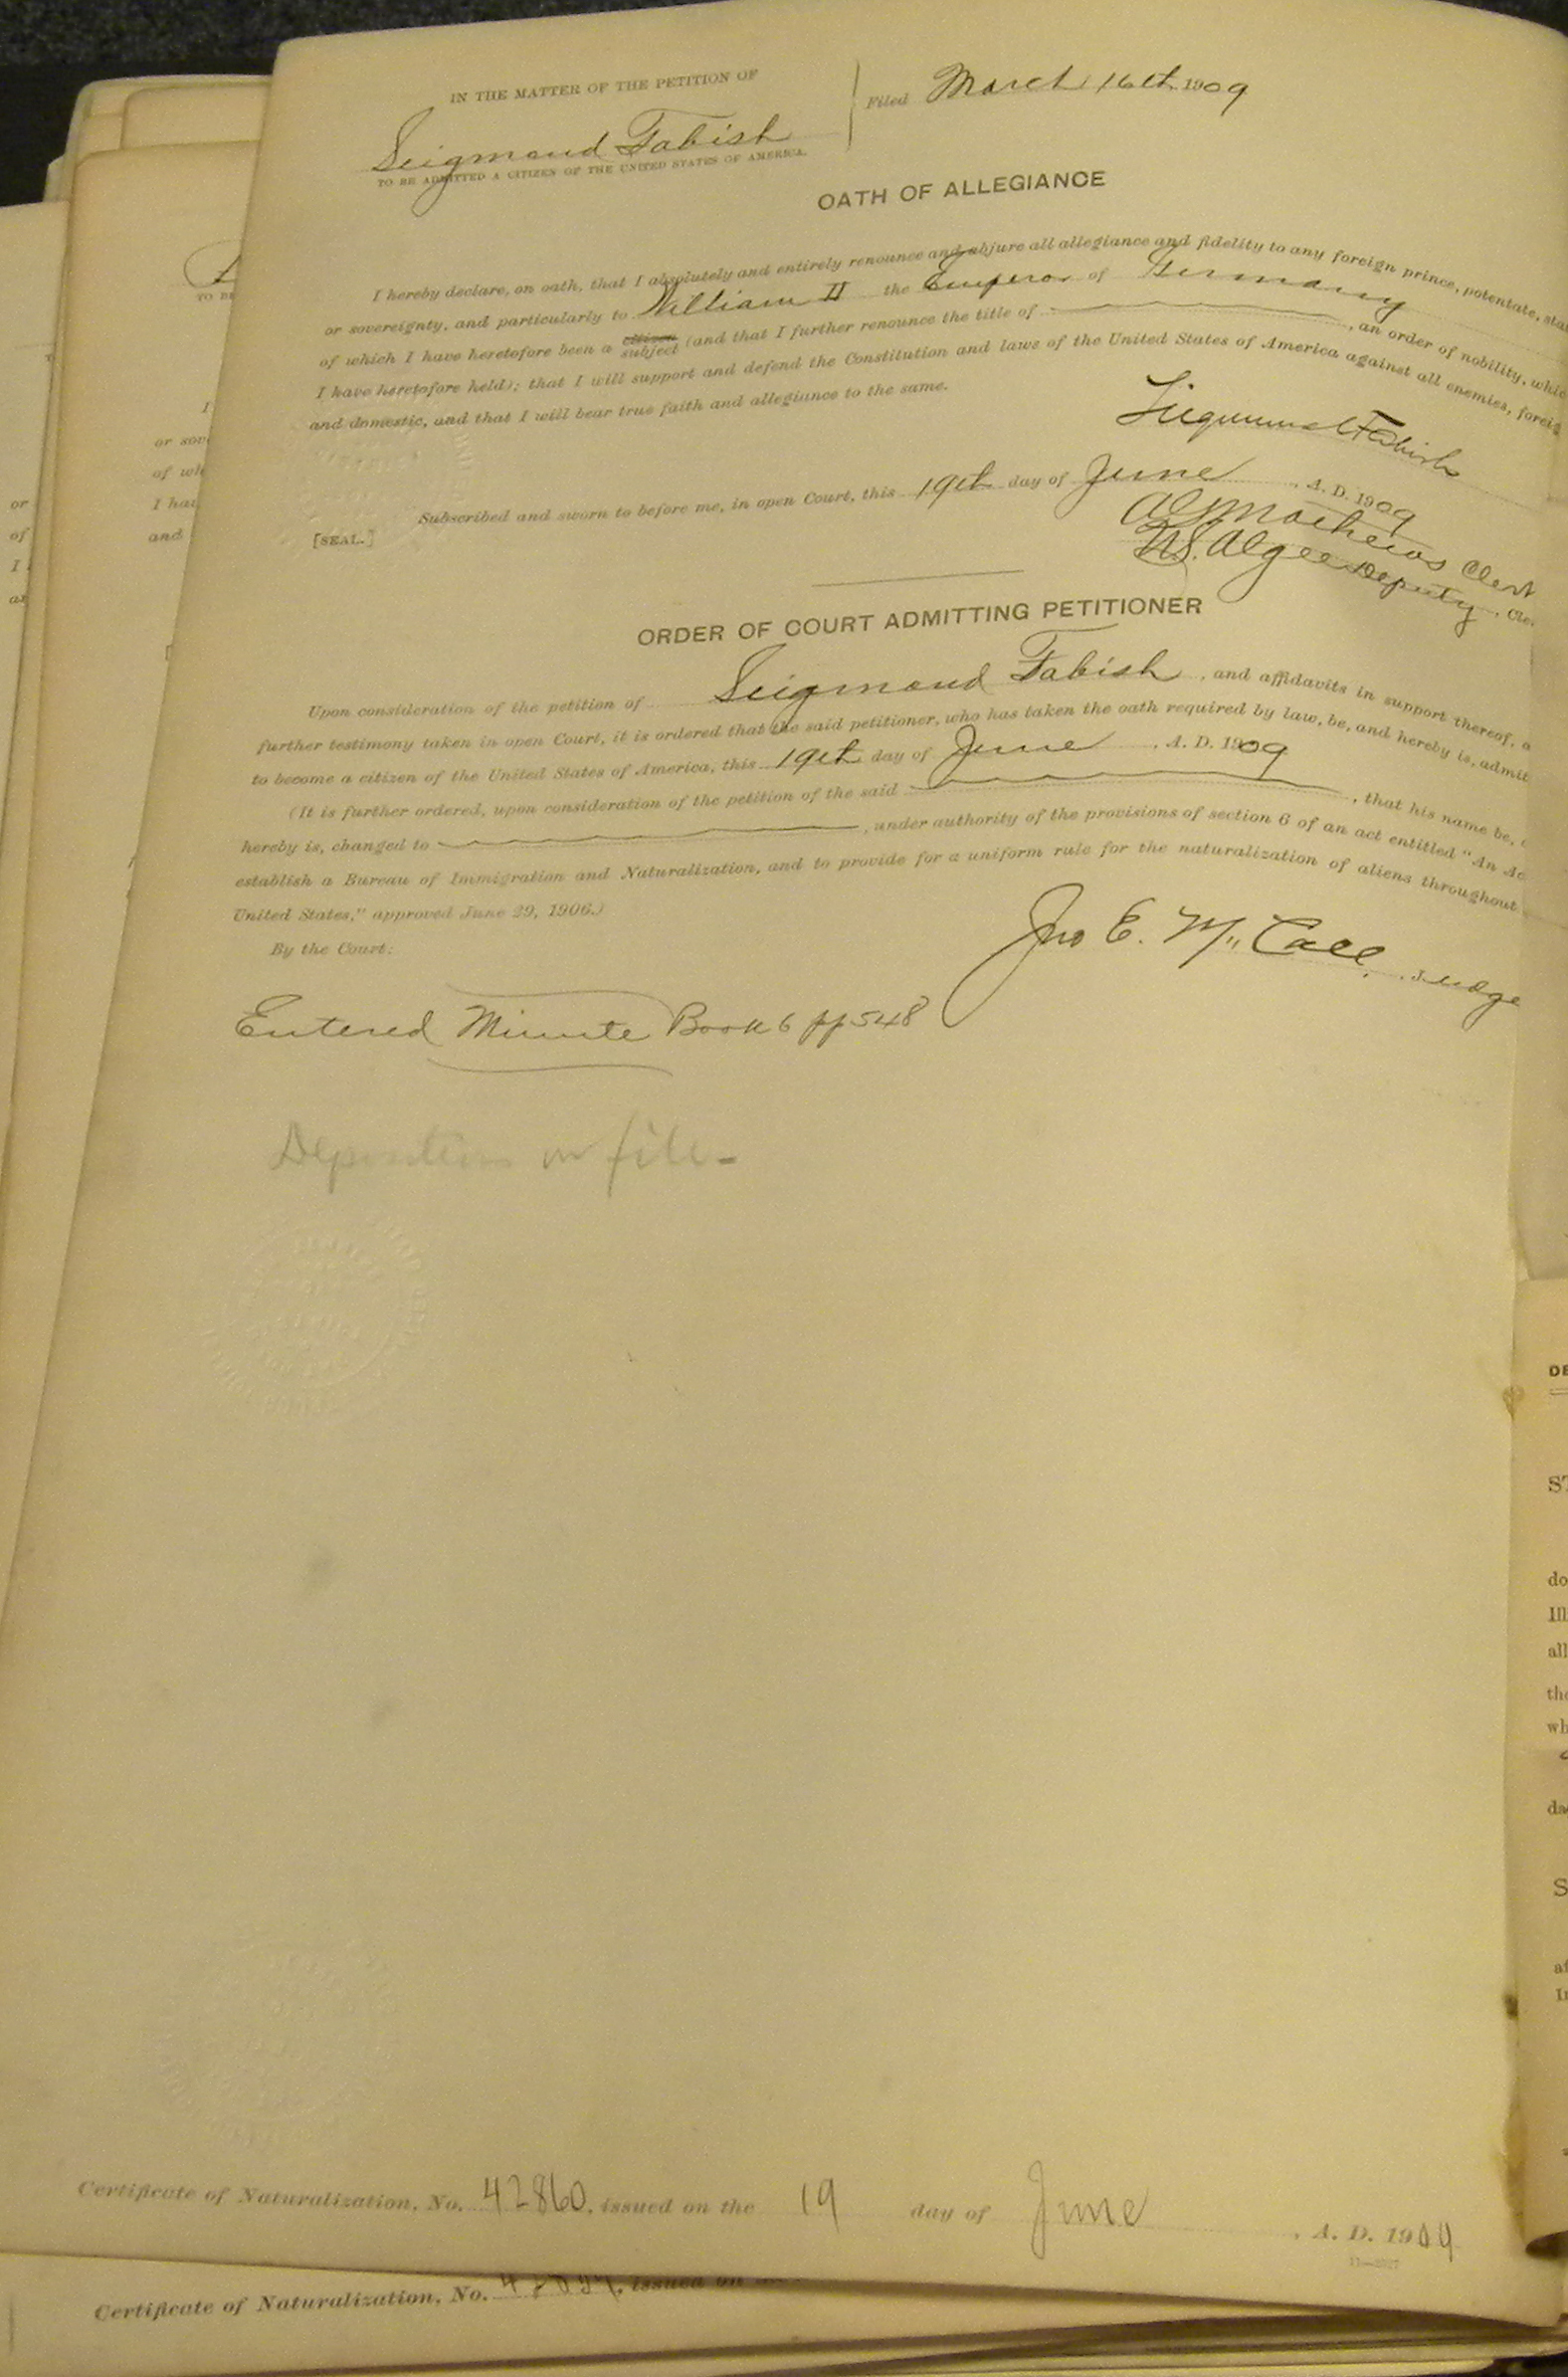 IN THE MATTER OF THE PETITION OF
Seigmond Tabish
TO BE ADMITTED A CITIZEN OF THE UNITED STATES OF AMERICA.
Filed March 16th 1909
OATH OF ALLEGIANCE
I hereby declare, on oath, that I absolutely and entirely renounce and abjure all allegiance and fidelity to any foreign prince, potentate, stat
or sovereignty, and particularly to William II the Emperor of Germany
of which I have heretofore been a citizen subject (and that I further renounce the title of , an order of nobility, whic
I have heretofore held); that I will support and defend the Constitution and laws of the United States of America against all enemies, foreig
and domestic, and that I will bear true faith and allegiance to the same.
Subscribed and sworn to before me, in open Court, this 19th day of June , A. D. 1909
[SEAL.]
Clerk
W.S. Algee Deputy . Cle
ORDER OF COURT ADMITTING PETITIONER
Upon consideration of the petition of Seigmond Tabish , and affidavits in support thereof, a
further testimony taken in open Court, it is ordered that the said petitioner, who has taken the oath required by law, be, and hereby is, admit
to become a citizen of the United States of America, this 19th day of June , A. D. 1909
(It is further ordered, upon consideration of the petition of the said , that his name be,
hereby is, changed to , under authority of the provisions of section 6 of an act entitled "An Ac
establish a Bureau of Immigration and Naturalization, and to provide for a uniform rule for the naturalization of aliens throughout
United States," approved June 29, 1906.)
By the Court:
Jno E. McCall , Judge
Entered Minute Book 6 pp 548
Deposition on file-
Certificate of Naturalization, No. 42860, issued on the 19 day of June , A. D. 1909
Certificate of Naturalization, No. issued on